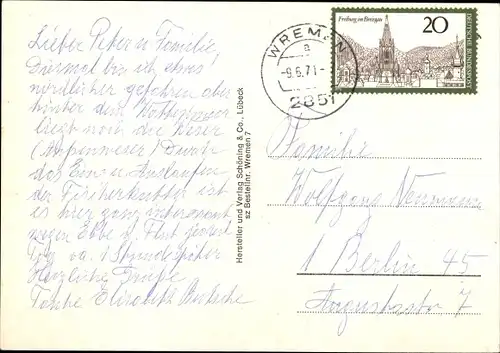 Lieber Peter u Familie,
Diesmal bin ich etwas
nördlicher gefahren aber
hinter dem
liegt noch die Weser
(Außenweser) Durch
das Ein u Auslaufen
der Fischerkutter ist
es hier ganz interessant
wegen Ebbe u Flut jeden
Tag ca. 1 Stunde später
Herzliche Grüße
Tante Elisabeth
Hersteller und Verlag Schöning & Co., Lübeck
sz Bestellnr. Wremen 7
WREMEN
a
-9.6.71-
2851
Freiburg im Breisgau
20
DEUTSCHE BUNDESPOST
Familie
Wolfgang
1 Berlin 45
Auguststr 7